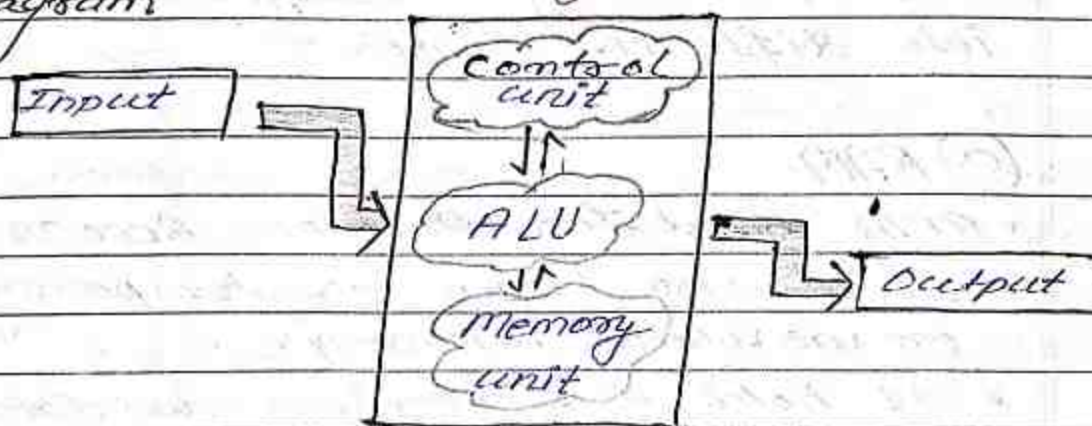 Input
Control
unit
ALU
Memory
unit
Output